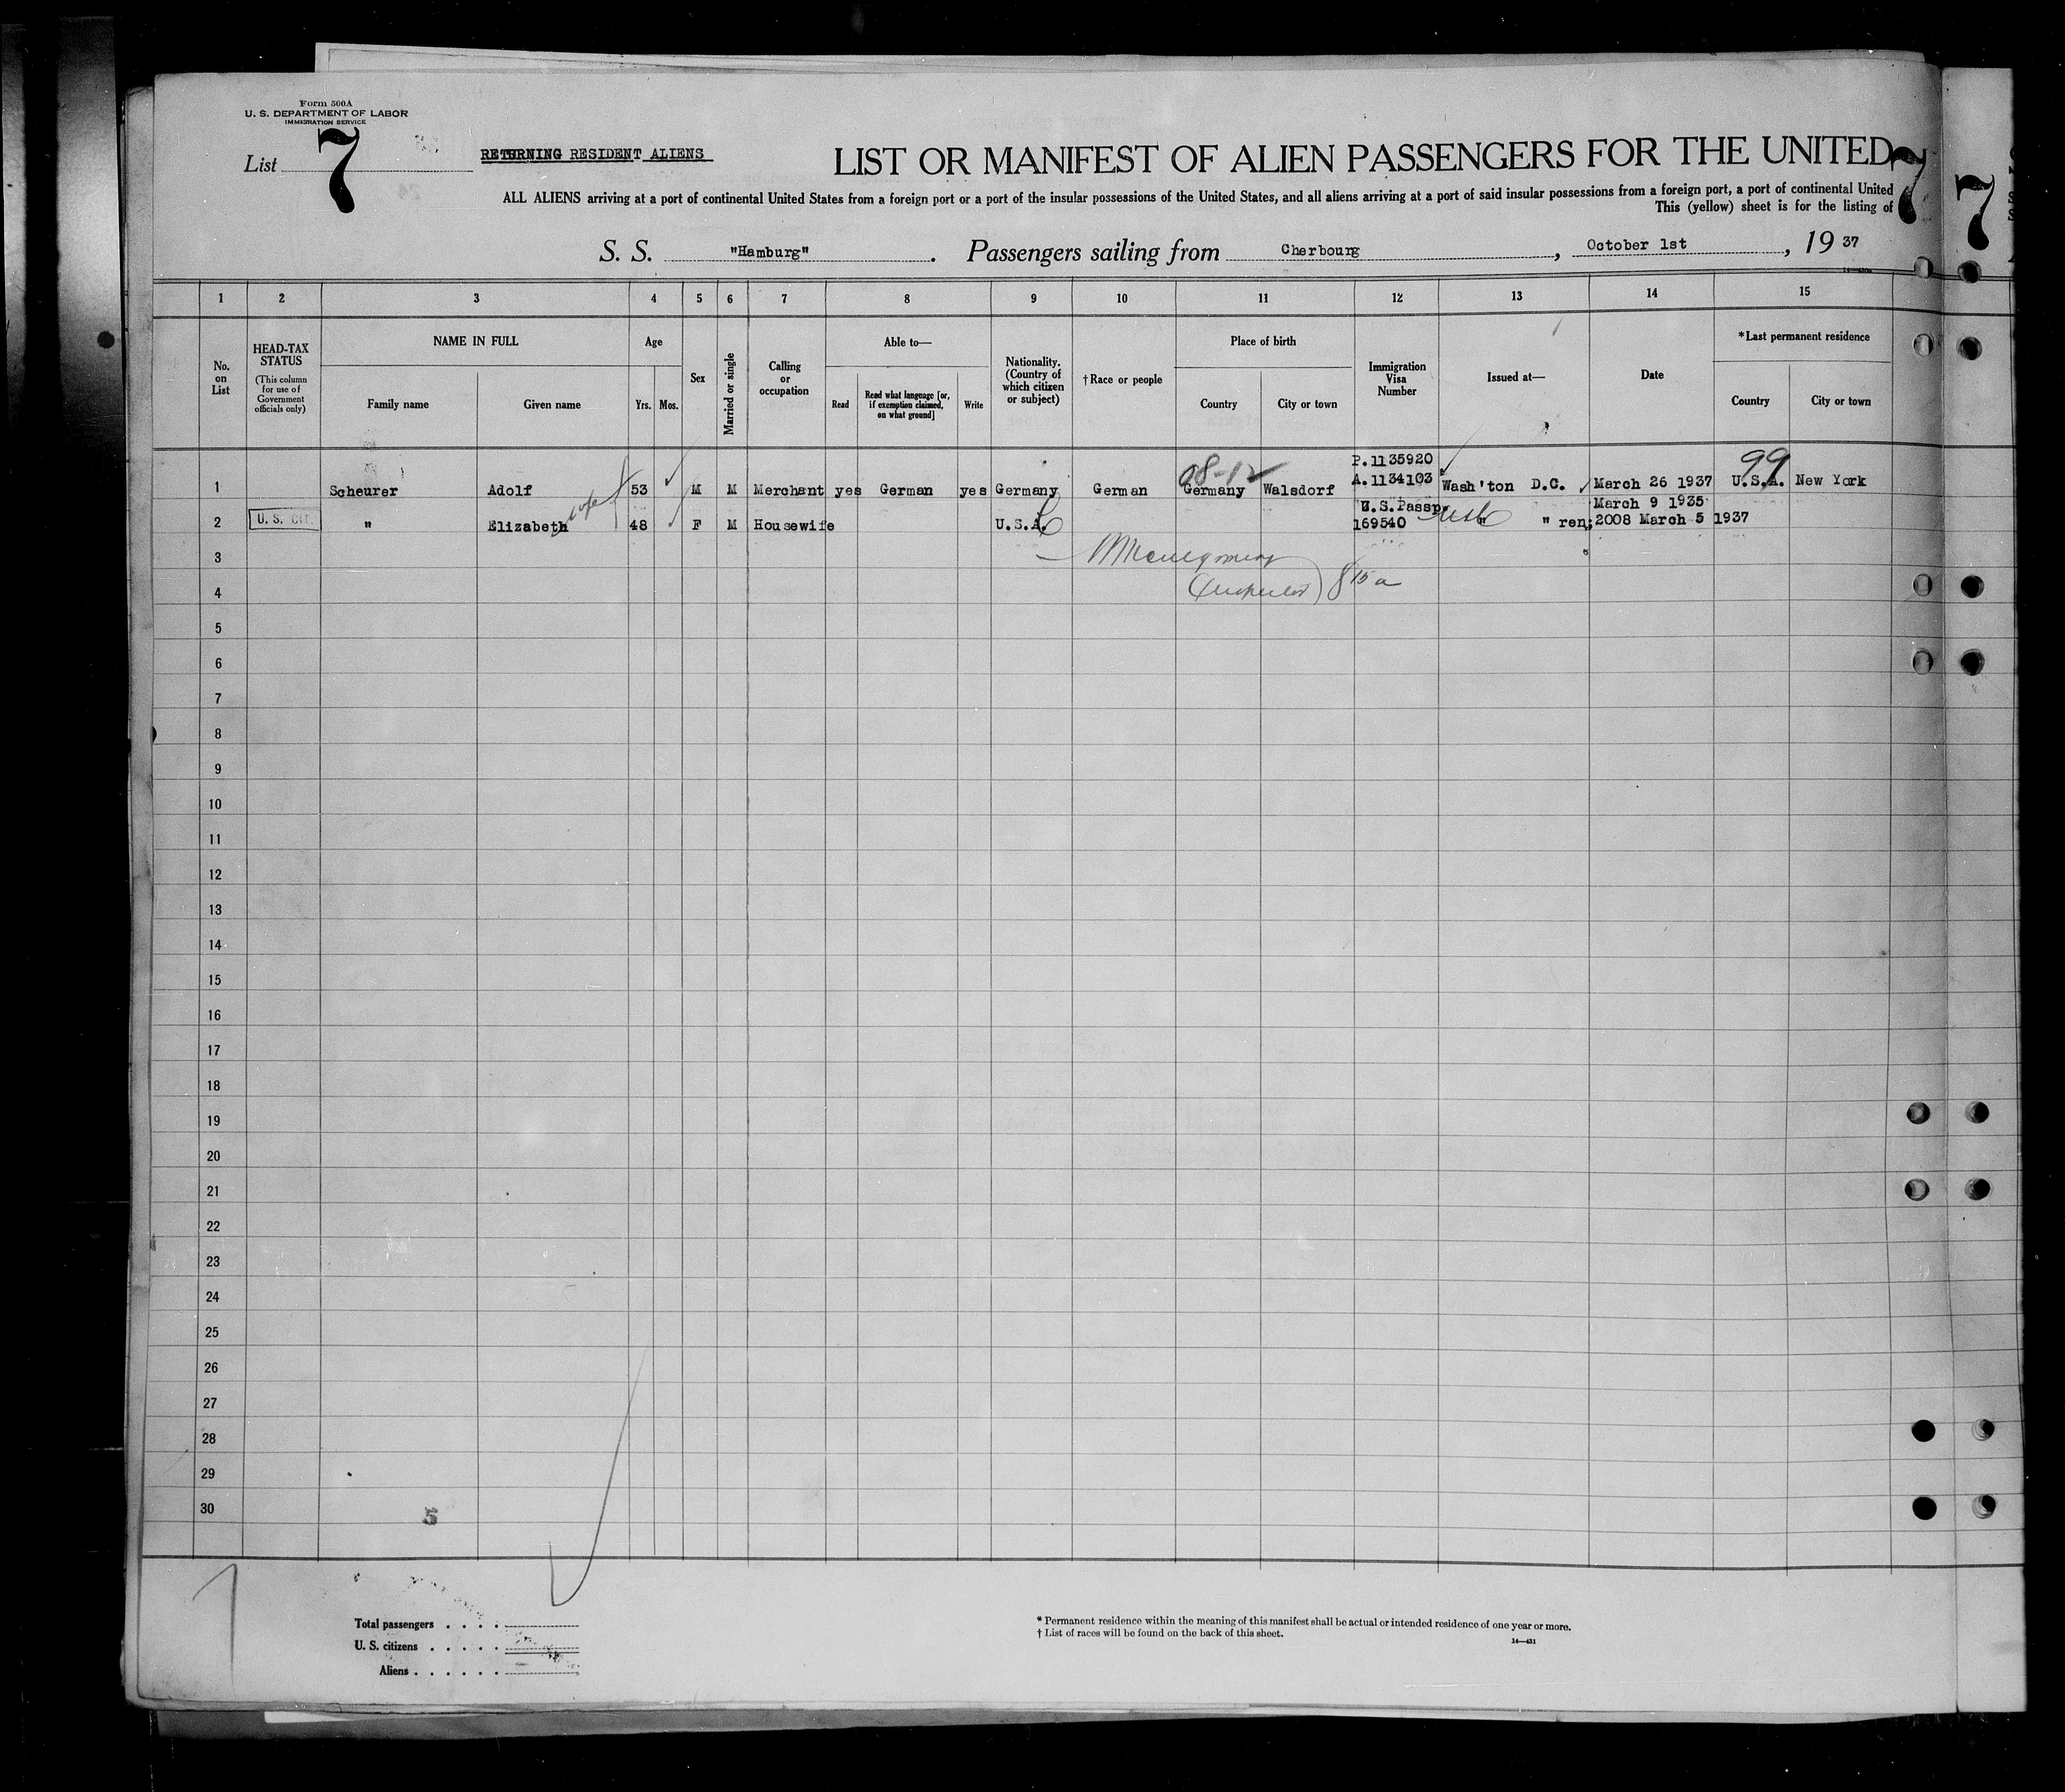 Form 500A
U. S. DEPARTMENT OF LABOR
IMMIGRATION SERVICE
List 7
RETURNING RESIDENT ALIENS
LIST OR MANIFEST OF ALIEN PASSENGERS FOR THE UNITED
7
7
ALL ALIENS arriving at a port of continental United States from a foreign port or a port of the insular possessions of the United States, and all aliens arriving at a port of said insular possessions from a foreign port, a port of continental United
This (yellow) sheet is for the listing of
S. S. "Hamburg". Passengers sailing from Cherbourg, October 1st, 19 37
1 2 3 4 5 6 7 8 9 10 11 12 13 14 15
No. on List
HEAD-TAX STATUS
(This column for use of Government officials only)
NAME IN FULL
Family name
Given name
Age
Yrs.
Mos.
Sex
Married or single
Calling or occupation
Able to—
Read
Read what language [or, if exemption claimed, on what ground]
Write
Nationality. (Country of which citizen or subject)
†Race or people
Place of birth
Country
City or town
Immigration Visa Number
Issued at—
Date
*Last permanent residence
Country
City or town
P.1135920
98-12
99
1 Scheurer Adolf 53 M M Merchant yes German yes Germany German Germany Walsdorf A.1134103 Wash'ton D.C. March 26 1937 U.S.A. New York
U.S.Passp. March 9 1935
2 U. S. CIT. " Elizabeth wife 48 F M Housewife U.S.A. 169540 " " ren; 2008 March 5 1937
3 Montgomery
4 8 15 a
5
6
7
8
9
10
11
12
13
14
15
16
17
18
19
20
21
22
23
24
25
26
27
28
29
30
5
Total passengers . . . .
U. S. citizens . . . . .
Aliens . . . . . .
* Permanent residence within the meaning of this manifest shall be actual or intended residence of one year or more.
† List of races will be found on the back of this sheet.
14—431